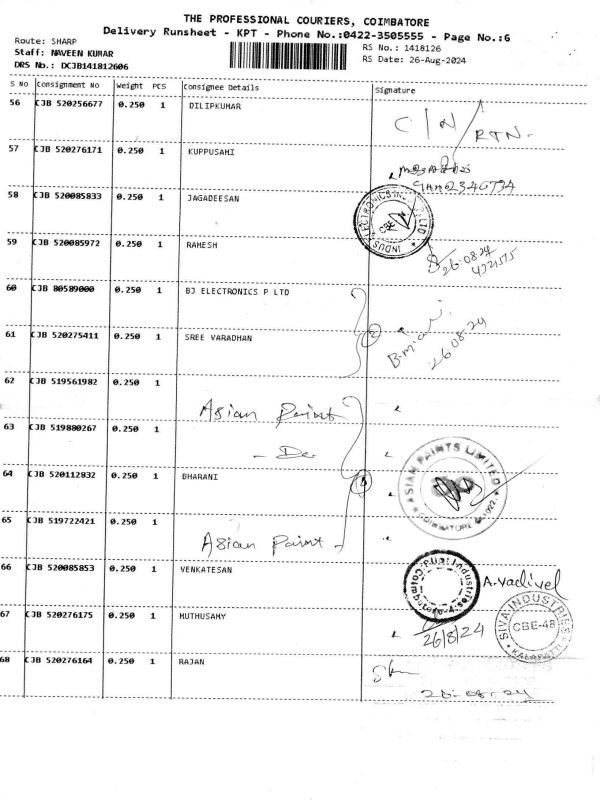 THE PROFESSIONAL COURIERS, COIMBATORE
Delivery Runsheet - KPT - Phone No.:0422-3505555 - Page No.:6
Route: SHARP
RS No.: 1418126
Staff: NAVEEN KUMAR
RS Date: 26-Aug-2024
DRS No.: DCJB141812606
S No Consignment No Weight PCS Consignee Details Signature
56 CJB 520256677 0.250 1 DILIPKUMAR
C/N RTN-
57 CJB 520276171 0.250 1 KUPPUSAMI
58 CJB 520085833 0.250 1 JAGADEESAN
59 CJB 520085972 0.250 1 RAMESH
26-08-24
60 CJB 80589000 0.250 1 BJ ELECTRONICS P LTD
61 CJB 520275411 0.250 1 SREE VARADHAN
26-08-24
62 CJB 519561982 0.250 1
Asian Paint
63 CJB 519880267 0.250 1
- Do
64 CJB 520112832 0.250 1 BHARANI
ASIAN PAINTS LIMITED
COIMBATORE
65 CJB 519722421 0.250 1
Asian Paint
66 CJB 520085853 0.250 1 VENKATESAN
A. Vadivel
67 CJB 520276175 0.250 1 MUTHUSAMY
26/8/24
SIVA INDUSTRIES
CBE-48
KALAPATTI
68 CJB 520276164 0.250 1 RAJAN
26-08-24